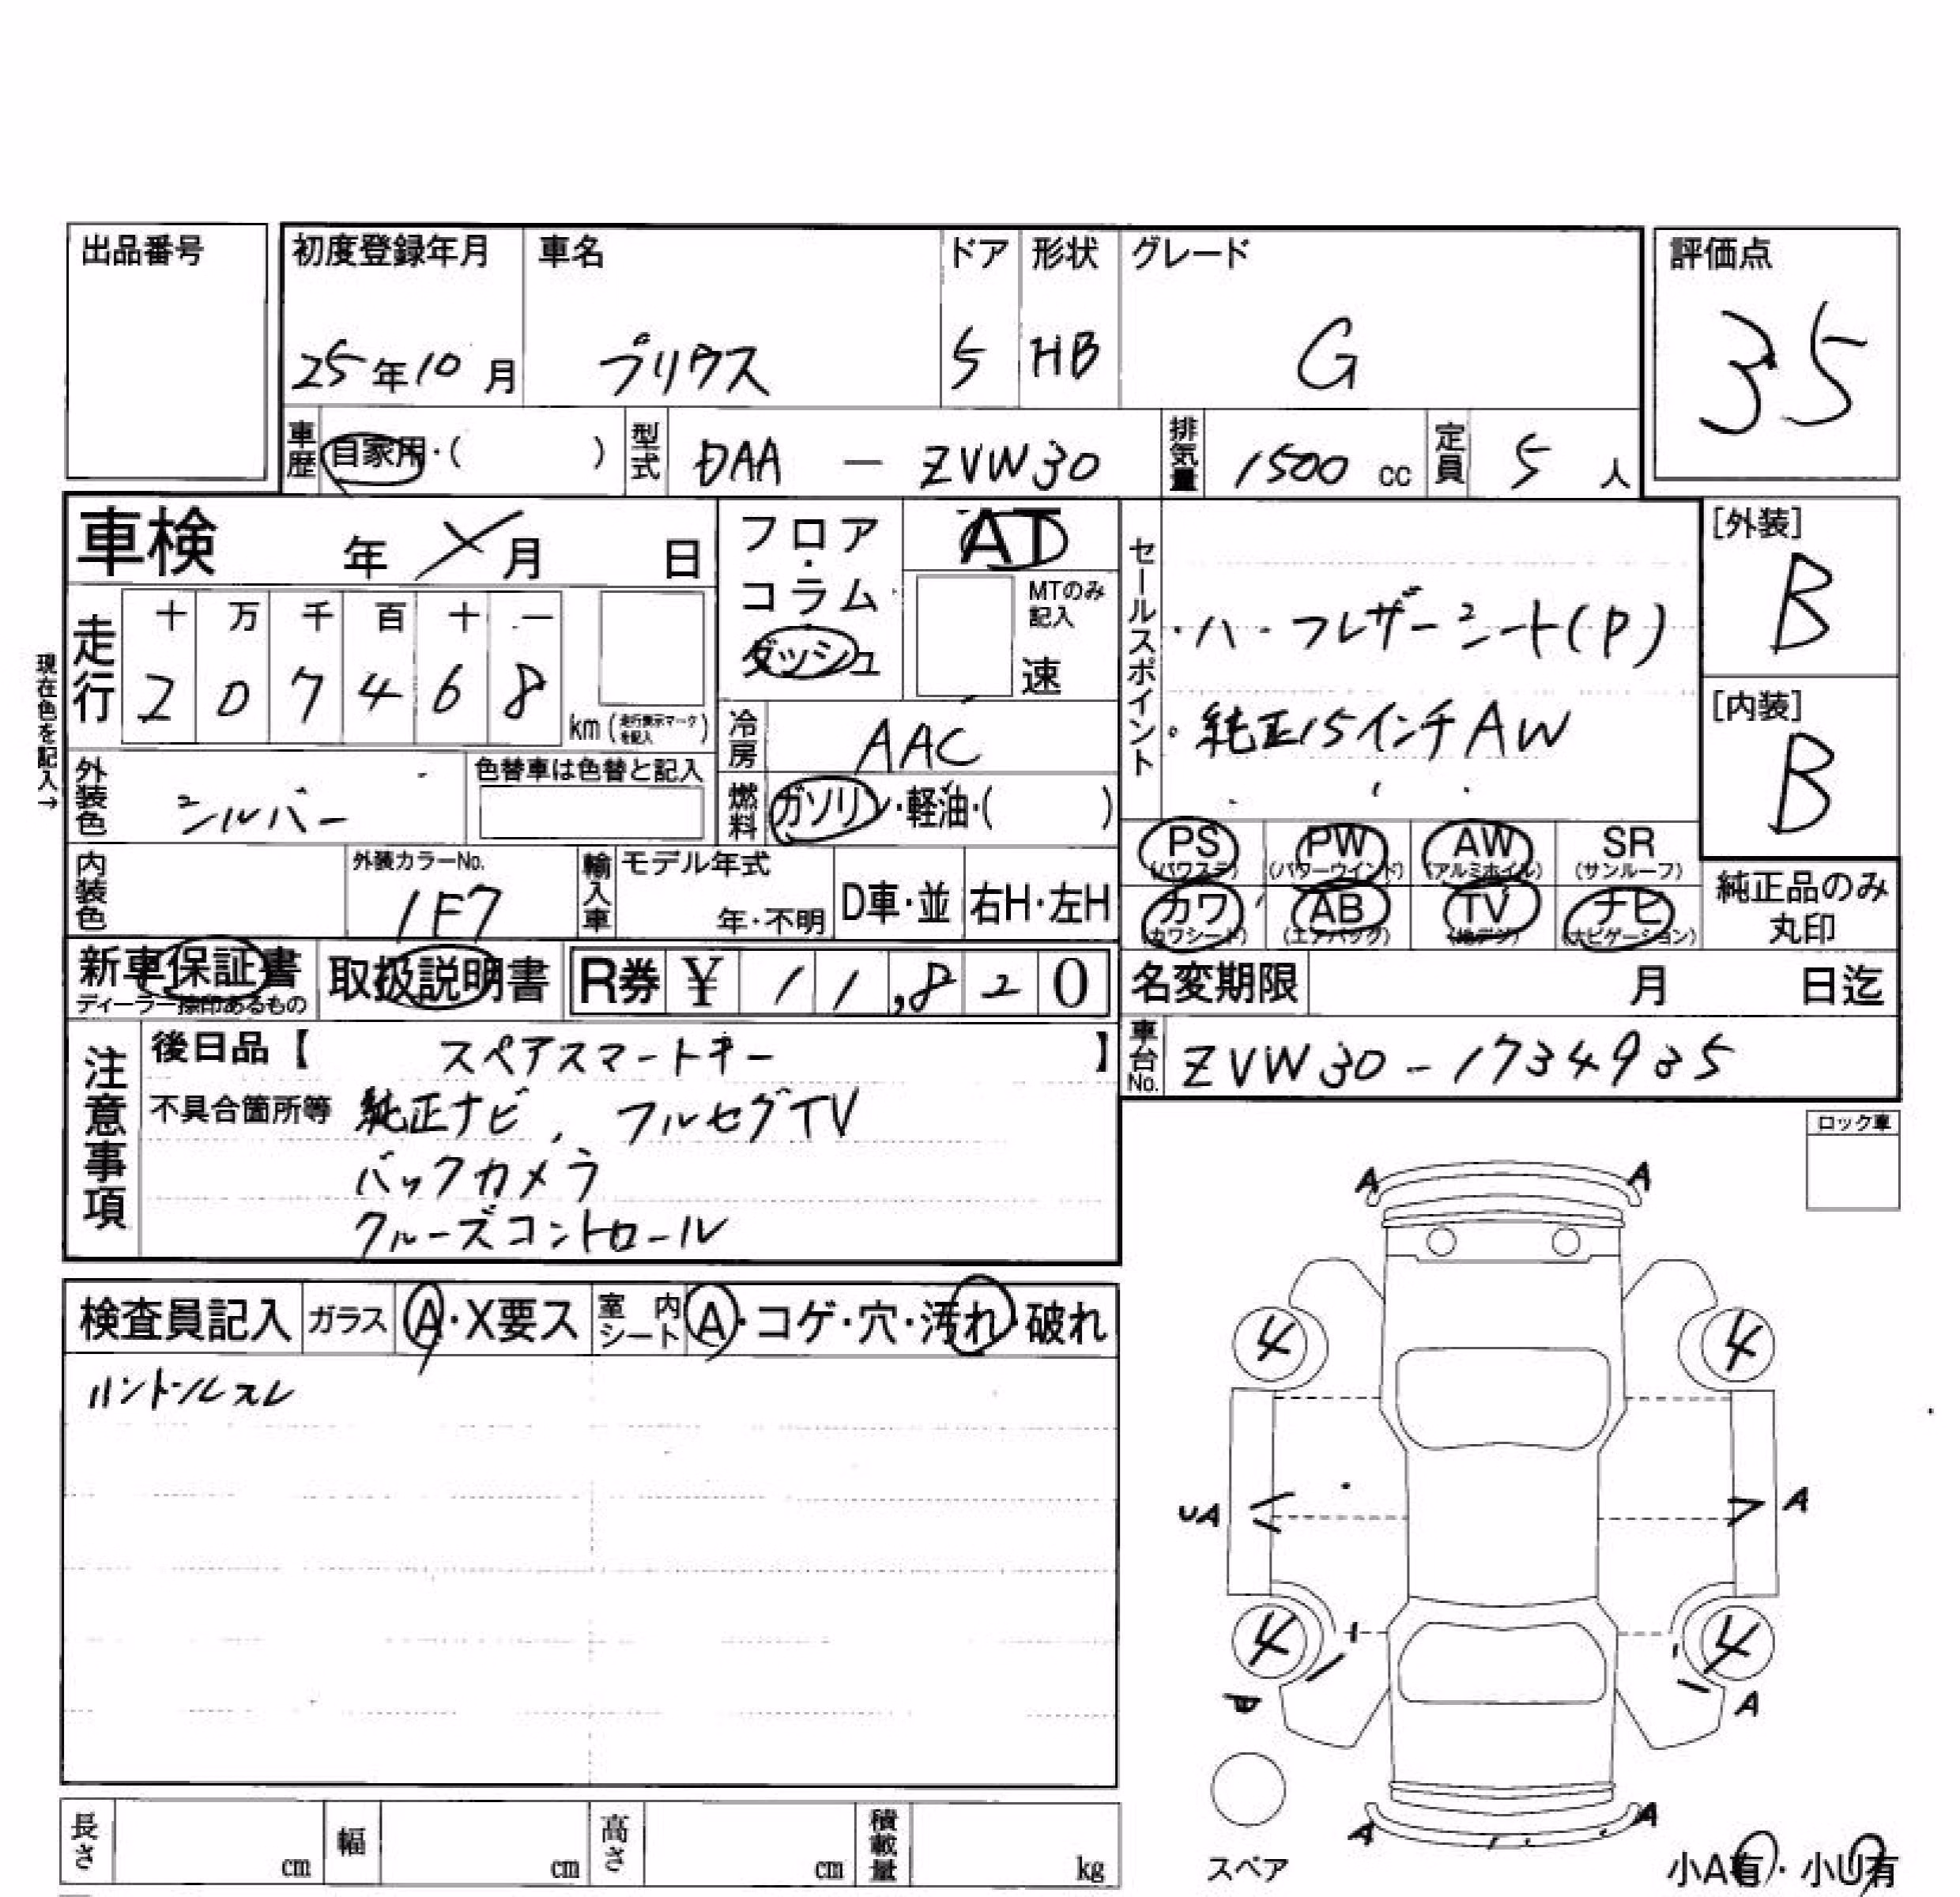 出品番号
初度登録年月 車名 ドア 形状 グレード 評価点
25年10月 プリウス 5 HB G 35
車歴 自家用・( ) 型式 DAA - ZVW30 排気量 1500 cc 定員 5 人
車検 年 月 日
フロア・コラム・ダッシュ
AT
MTのみ記入
速
走行
十 万 千 百 十 一
2 0 7 4 6 8
km(走行表示マークを記入)
現在色を記入→
冷房 AAC
外装色 シルバー 色替車は色替と記入
燃料 ガソリン・軽油・( )
セールスポイント
・ハーフレザーシート(P)
・純正15インチAW
[外装]
B
[内装]
B
PS (パワステ) PW (パワーウインド) AW (アルミホイル) SR (サンルーフ)
カワ (カワシート) AB (エアバック) TV (地デジ) ナビ (ナビゲーション)
純正品のみ丸印
内装色 外装カラーNo. 1F7 輸入車 モデル年式 年・不明 D車・並 右H・左H
新車保証書 ディーラー捺印あるもの 取扱説明書 R券 ¥ 11,820
名変期限 月 日迄
車台No. ZVW30-1734935
注意事項
後日品【 スペアスマートキー 】
不具合箇所等 純正ナビ, フルセグTV
バックカメラ
クルーズコントロール
ロック車
検査員記入 ガラス A・X要ス 室内シート A・コゲ・穴・汚れ・破れ
ハンドルスレ
A A
4 4
UA A
4 4
A
A A
スペア
小A有・小U有
長さ cm 幅 cm 高さ cm 積載量 kg